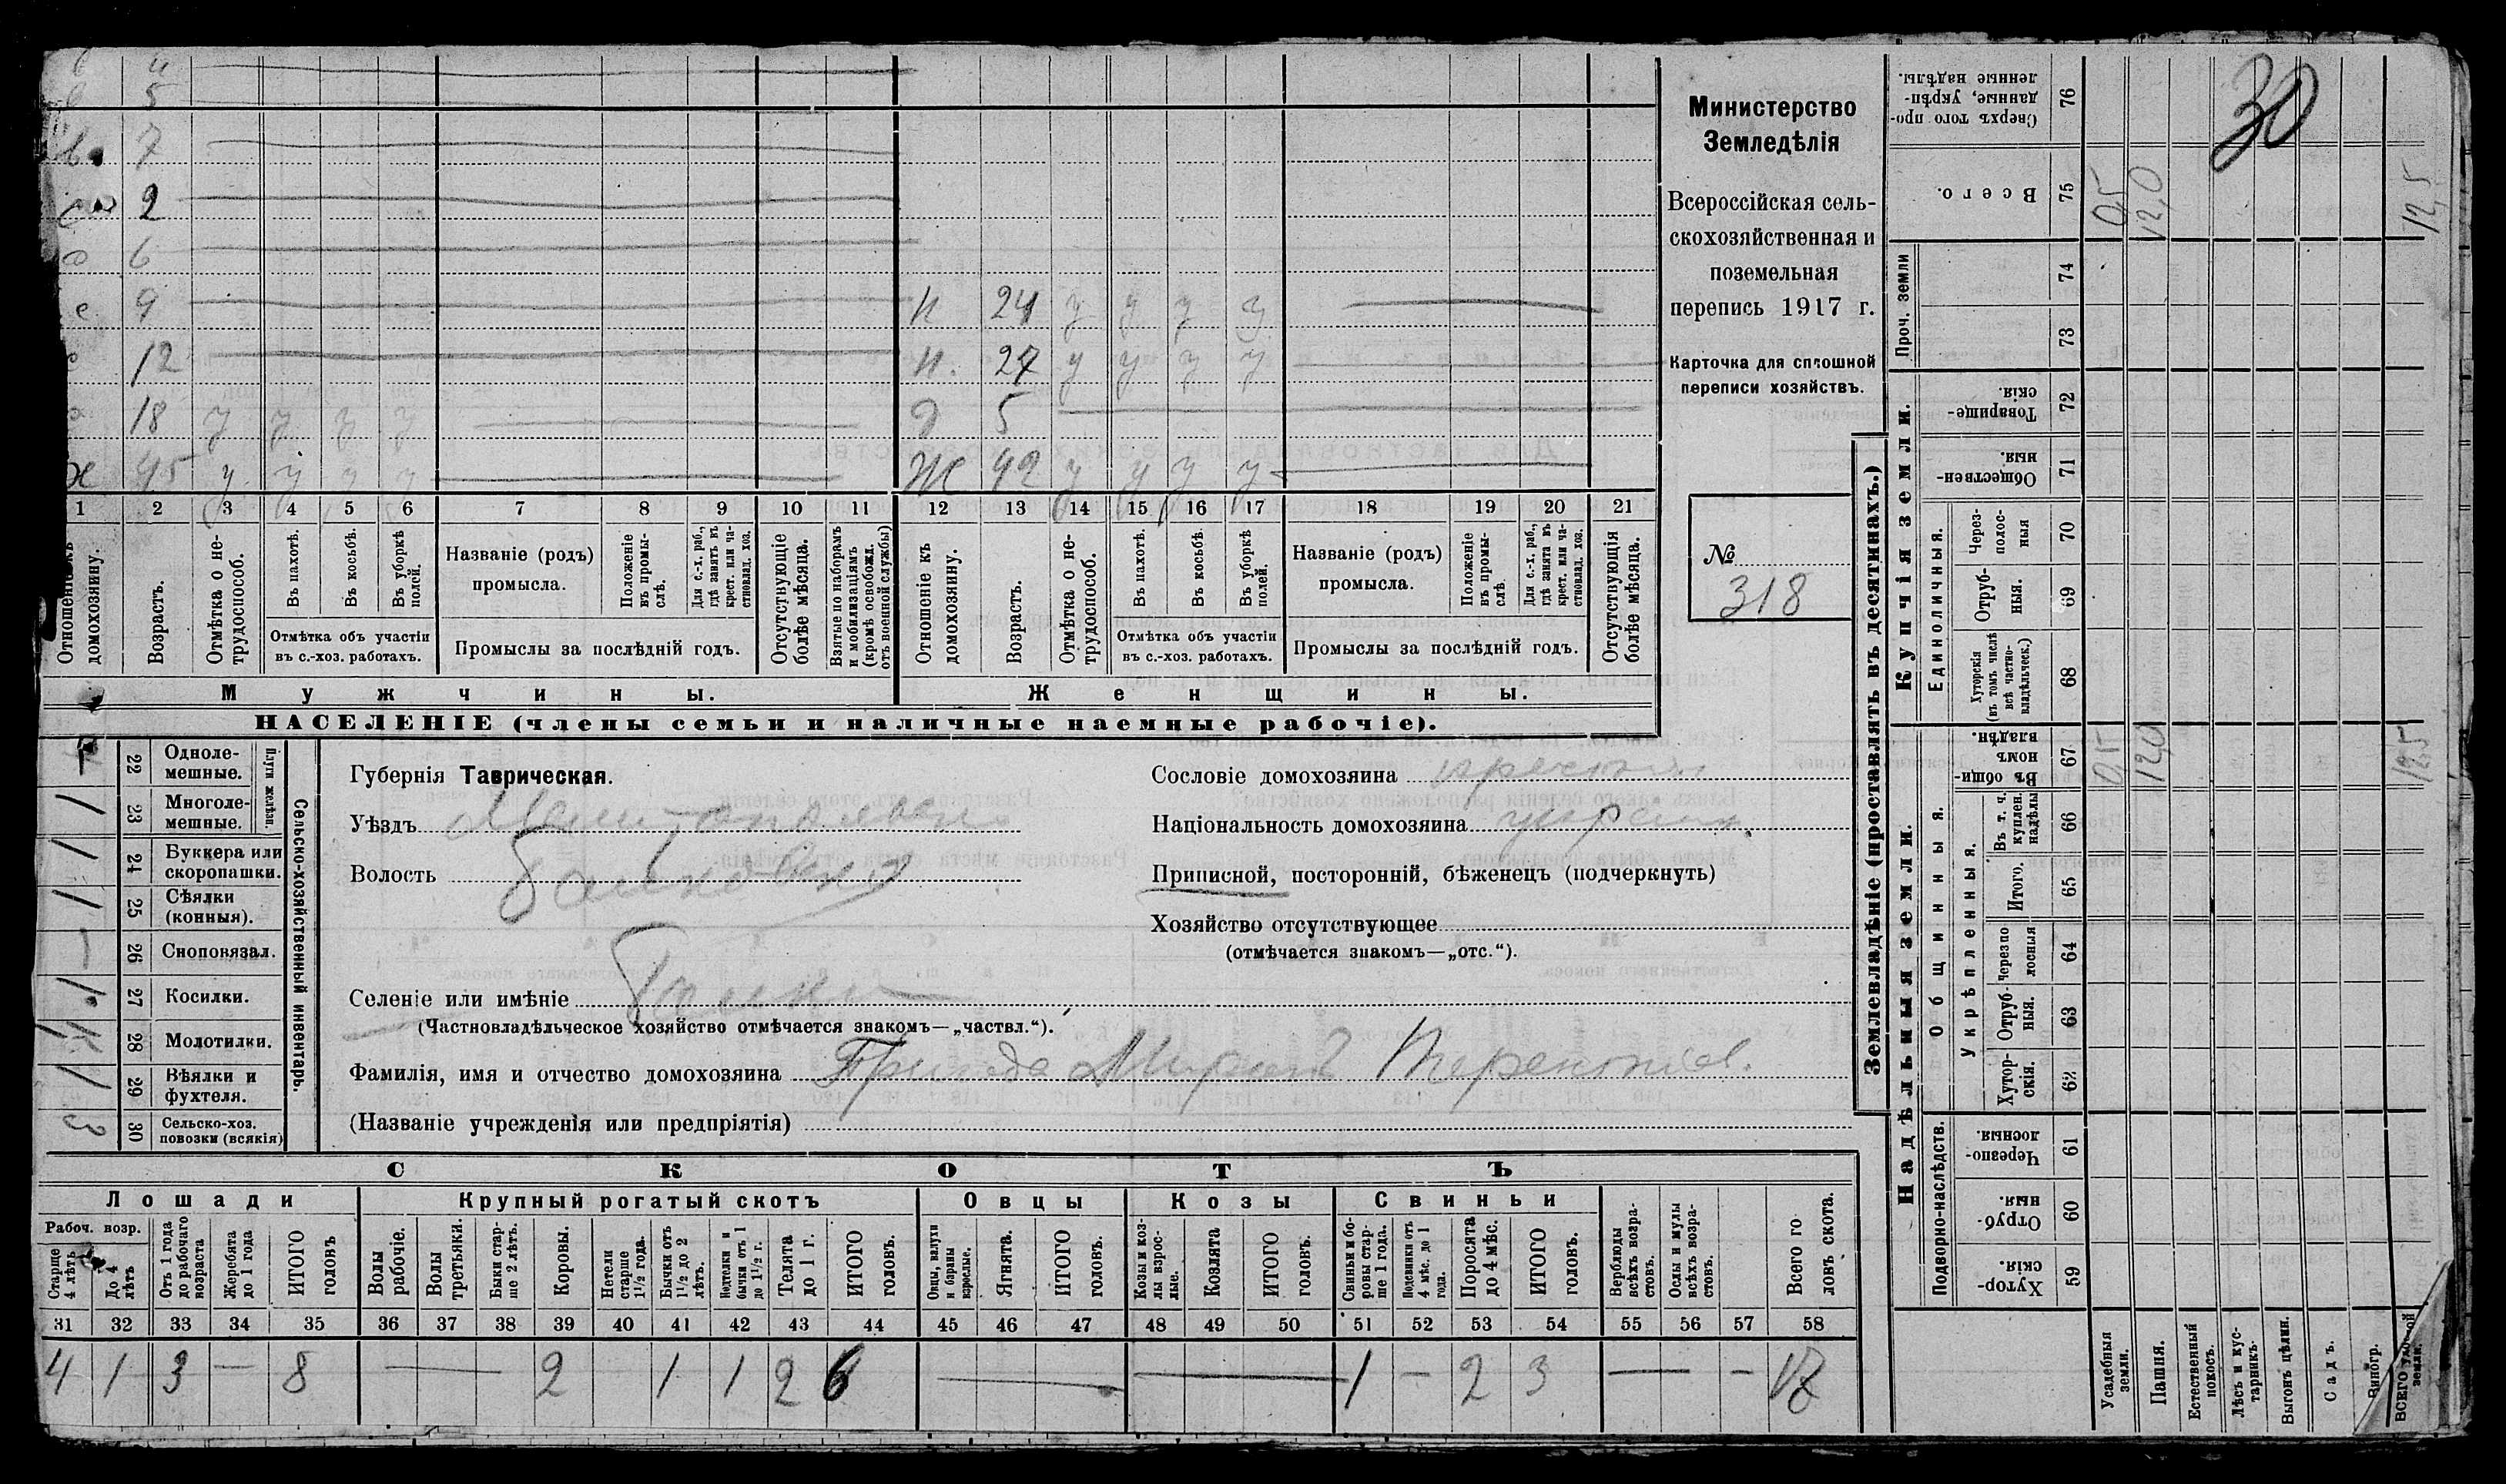 4
5
7
2
6
9
н 24 у у у у
12
н. 27 у у у у
18 у у у у
д 5
45 у у у у
Ж 42 у у у у
1 2 3 4 5 6 7 8 9 10 11 12 13 14 15 16 17 18 19 20 21
Отношеніе къ домохозяину.
Возрастъ.
Отмѣтка о не-трудоспособ.
Въ пахотѣ.
Въ косьбѣ.
Въ уборкѣ полей.
Отмѣтка объ участіи
въ с.-хоз. работахъ.
Названіе (родъ)
промысла.
Положеніе въ промы-слѣ.
Для с.-х. раб., гдѣ занятъ въ крест. или ча-стновлад. хоз.
Промыслы за послѣдній годъ.
Отсутствующіе болѣе мѣсяца.
Взятые по наборамъ и мобилизаціямъ (кромѣ освобожд. отъ военной службы)
Отношеніе къ домохозяину.
Возрастъ.
Отмѣтка о не-трудоспособ.
Въ пахотѣ.
Въ косьбѣ.
Въ уборкѣ полей.
Отмѣтка объ участіи
въ с.-хоз. работахъ.
Названіе (родъ)
промысла.
Положеніе въ промы-слѣ.
Для с.-х. раб., гдѣ занята въ крест. или ча-стновлад. хоз.
Промыслы за послѣдній годъ.
Отсутствующія болѣе мѣсяца.
Мужчины.
Женщины.
НАСЕЛЕНІЕ (члены семьи и наличные наемные рабочіе).
Министерство
Земледѣлія
Всероссійская сель-
скохозяйственная и
поземельная
перепись 1917 г.
Карточка для сплошной
переписи хозяйствъ.
№
318
Сельско-хозяйственный инвентарь.
Плуги желѣзн.
22 Одноле-
мешные.
1 23 Многоле-
мешные.
1 24 Буккера или
скоропашки.
1 25 Сѣялки
(конныя).
— 26 Сноповязал.
1 27 Косилки.
28 Молотилки.
1 29 Вѣялки и
фухтеля.
3 30 Сельско-хоз.
повозки (всякія)
Губернія Таврическая.
Уѣздъ Мелитопольск
Волость
Селеніе или имѣніе
(Частновладѣльческое хозяйство отмѣчается знакомъ—„частвл.“).
Фамилія, имя и отчество домохозяина
(Названіе учрежденія или предпріятія)
Сословіе домохозяина
Національность домохозяина
Приписной, посторонній, бѣженецъ (подчеркнуть)
Хозяйство отсутствующее
(отмѣчается знакомъ—„отс.“).
СКОТЪ
Лошади
Крупный рогатый скотъ
Овцы
Козы
Свиньи
Рабоч. возр.
Старше 4 лѣтъ
До 4 лѣтъ
Отъ 1 года до рабочаго возраста
Жеребята до 1 года
ИТОГО головъ
Волы рабочіе.
Волы третьяки.
Быки стар-ше 2 лѣтъ.
Коровы.
Нетели старше 1½ года.
Бычки отъ 1½ до 2 лѣтъ.
Нетелки и бычки отъ 1 до 1½ г.
Телята до 1 г.
ИТОГО головъ.
Овцы, валухи и бараны взрослые.
Ягнята.
ИТОГО головъ.
Козы и коз-лы взрос-лые.
Козлята
ИТОГО головъ.
Свиньи и бо-ровы стар-ше 1 года.
Подсвинки отъ 4 мѣс. до 1 года.
Поросята до 4 мѣс.
ИТОГО головъ.
Верблюды всѣхъ возра-стовъ.
Ослы и мулы всѣхъ возра-стовъ.
Всего го ловъ скота.
31 32 33 34 35 36 37 38 39 40 41 42 43 44 45 46 47 48 49 50 51 52 53 54 55 56 57 58
4 1 3 — 8 — 2 1 1 2 6 — — 1 — 2 3 — —
Землевладѣніе (проставлять въ десятинахъ.)
Надѣльныя земли.
Купчія земли.
Проч. земли
Общинныя.
Укрѣпленныя.
Подворно-наслѣдств.
Единоличныя.
30
Сверхъ того про-данные, укрѣп-ленные надѣлы. 76
Всего. 75 0,5 12,0 12,5
74
73
Товарище-скія 72
Обществен-ныя. 71
Через-полос-ныя 70
Отруб-ныя. 69
Хуторскія (въ томъ числѣ всѣ частно-владѣльческ.) 68
Въ общи-номъ владѣн. 67 0,5 12,0 12,5
Въ т. ч. куплен. надѣлы 66
Итого. 65
Черезпо лосныя 64
Отруб-ныя. 63
Хутор-скія. 62
Черезпо-лосныя. 61
Отруб-ныя. 60
Хутор-скія. 59
Усадебныя земли.
Пашня.
Естественный покосъ.
Лѣсъ и кус-тарникъ.
Выгонъ цѣлин.
Садъ.
Виногр.